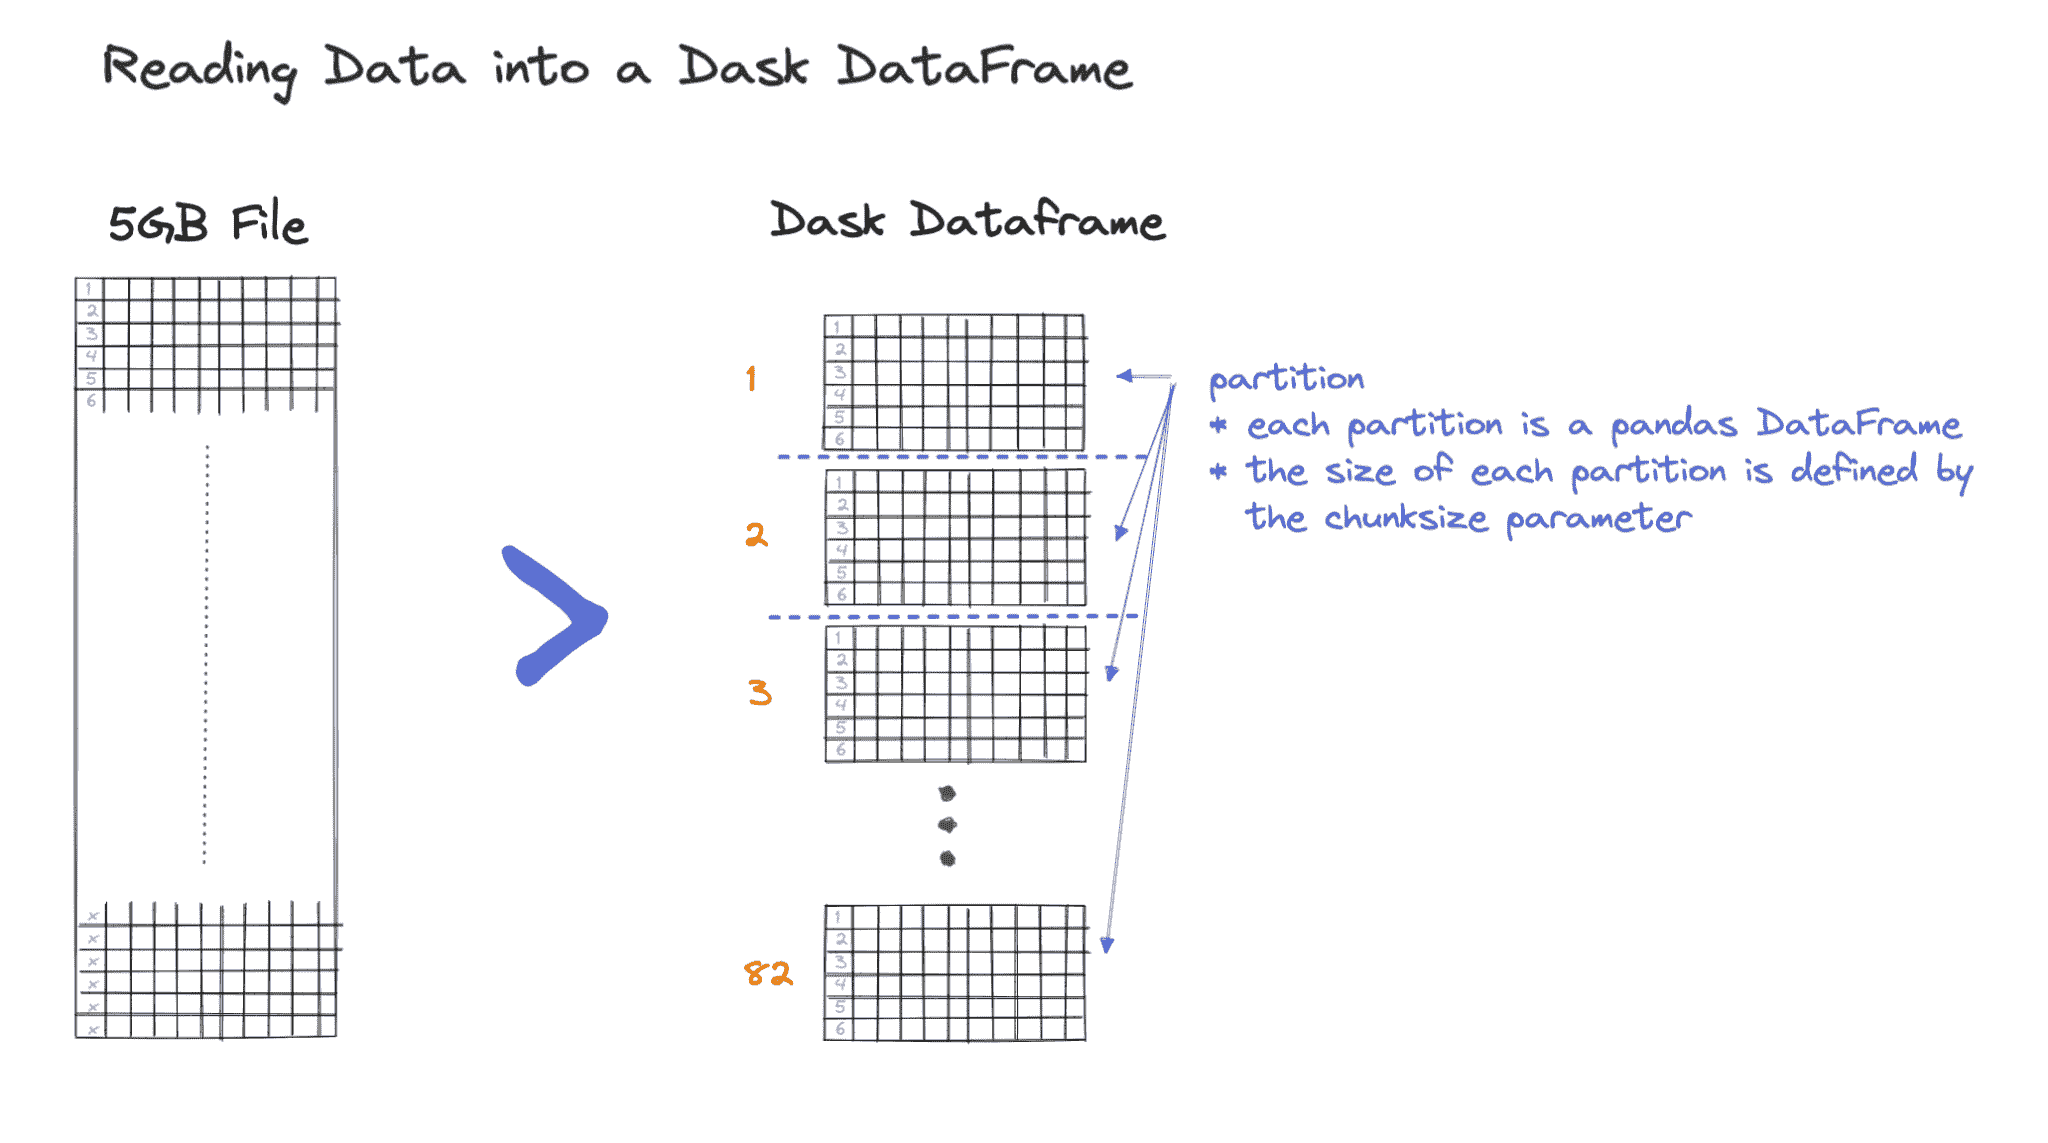 Reading Data into a Dask DataFrame
5GB File
1
2
3
4
5
6
x
x
x
x
x
x
Dask Dataframe
1
1
2
3
4
5
6
2
1
2
3
4
5
6
3
1
2
3
4
5
6
82
1
2
3
4
5
6
partition
* each partition is a pandas DataFrame
* the size of each partition is defined by
the chunksize parameter